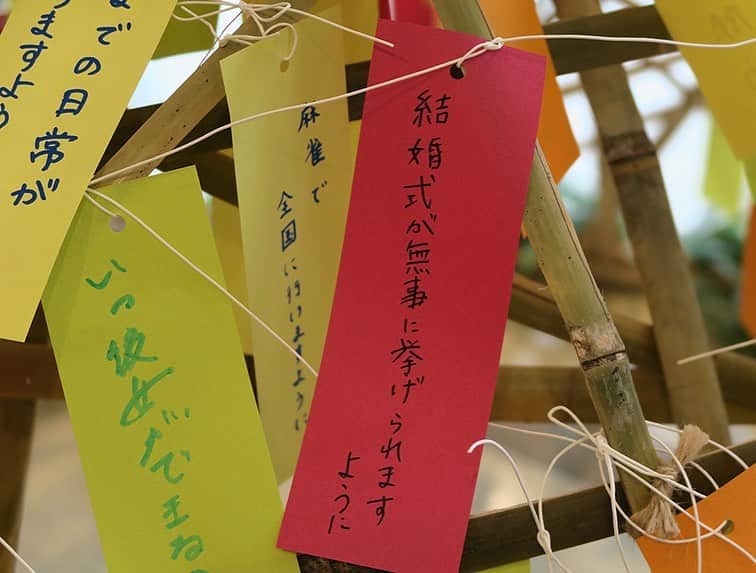 結婚式が無事に挙げられます
ように
麻雀で
全国に行けますように
までの日常が
ますよう
いつ